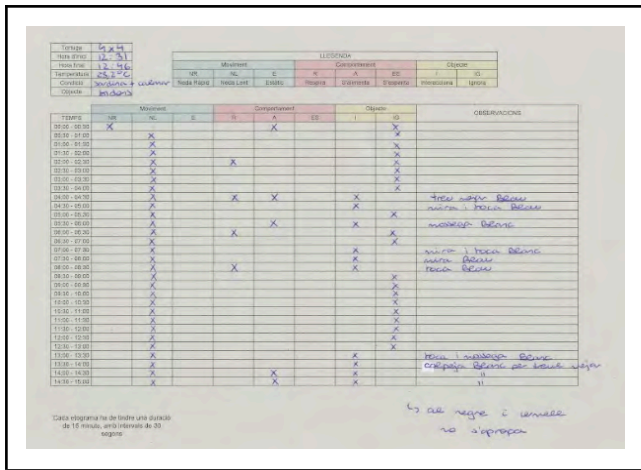 Tortuga 4x4
Hora d'inici 12:31
Hora final 12:46
Temperatura 25,2ºC
Condició sardina + calamar
Objecte
LLEGENDA
Moviment Comportament Objecte
NR NL E R A EE I IG
Neda Ràpid Neda Lent Estàtic Respira S'alimenta Interacciona Ignora
Moviment Comportament Objecte OBSERVACIONS
TEMPS NR NL E R A EE I IG
00:00 - 00:30 X X X
00:30 - 01:00 X X
01:00 - 01:30 X X
01:30 - 02:00 X X
02:00 - 02:30 X X X
02:30 - 03:00 X X
03:00 - 03:30 X X
03:30 - 04:00 X X
04:00 - 04:30 X X X X treu Blau
04:30 - 05:00 X X mira i toca Blau
05:00 - 05:30 X X
05:30 - 06:00 X X X mossega Blanc
06:00 - 06:30 X X X
06:30 - 07:00 X X
07:00 - 07:30 X X mira i toca Blanc
07:30 - 08:00 X X mira Blau
08:00 - 08:30 X X X toca Blau
08:30 - 09:00 X X
09:00 - 09:30 X X
09:30 - 10:00 X X
10:00 - 10:30 X X
10:30 - 11:00 X X
11:00 - 11:30 X X
11:30 - 12:00 X X
12:00 - 12:30 X X
12:30 - 13:00 X X
13:00 - 13:30 X X toca i mossega Blanc
13:30 - 14:00 X X colpeja Blanc per treure
14:00 - 14:30 X X X "
14:30 - 15:00 X X X "
Cada etograma ha de tindre una duració
de 15 minuts, amb intervals de 30
segons
↳ al negre i vermell
no s'apropa